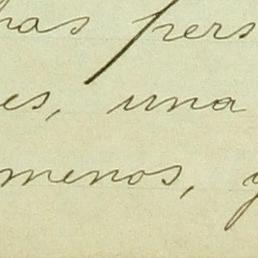 has pers
es, una
menos, y